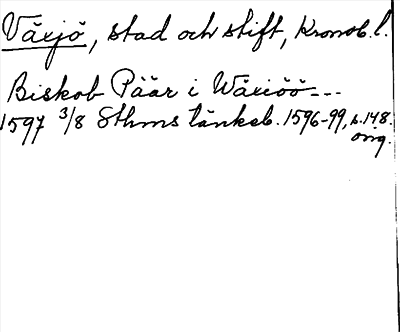 Växjö, stad och stift, Kronob. l.
Biskob Päär i Wäxiöö---
1597 3/8 Sthms tänkeb. 1596-99, s. 148.
orig.